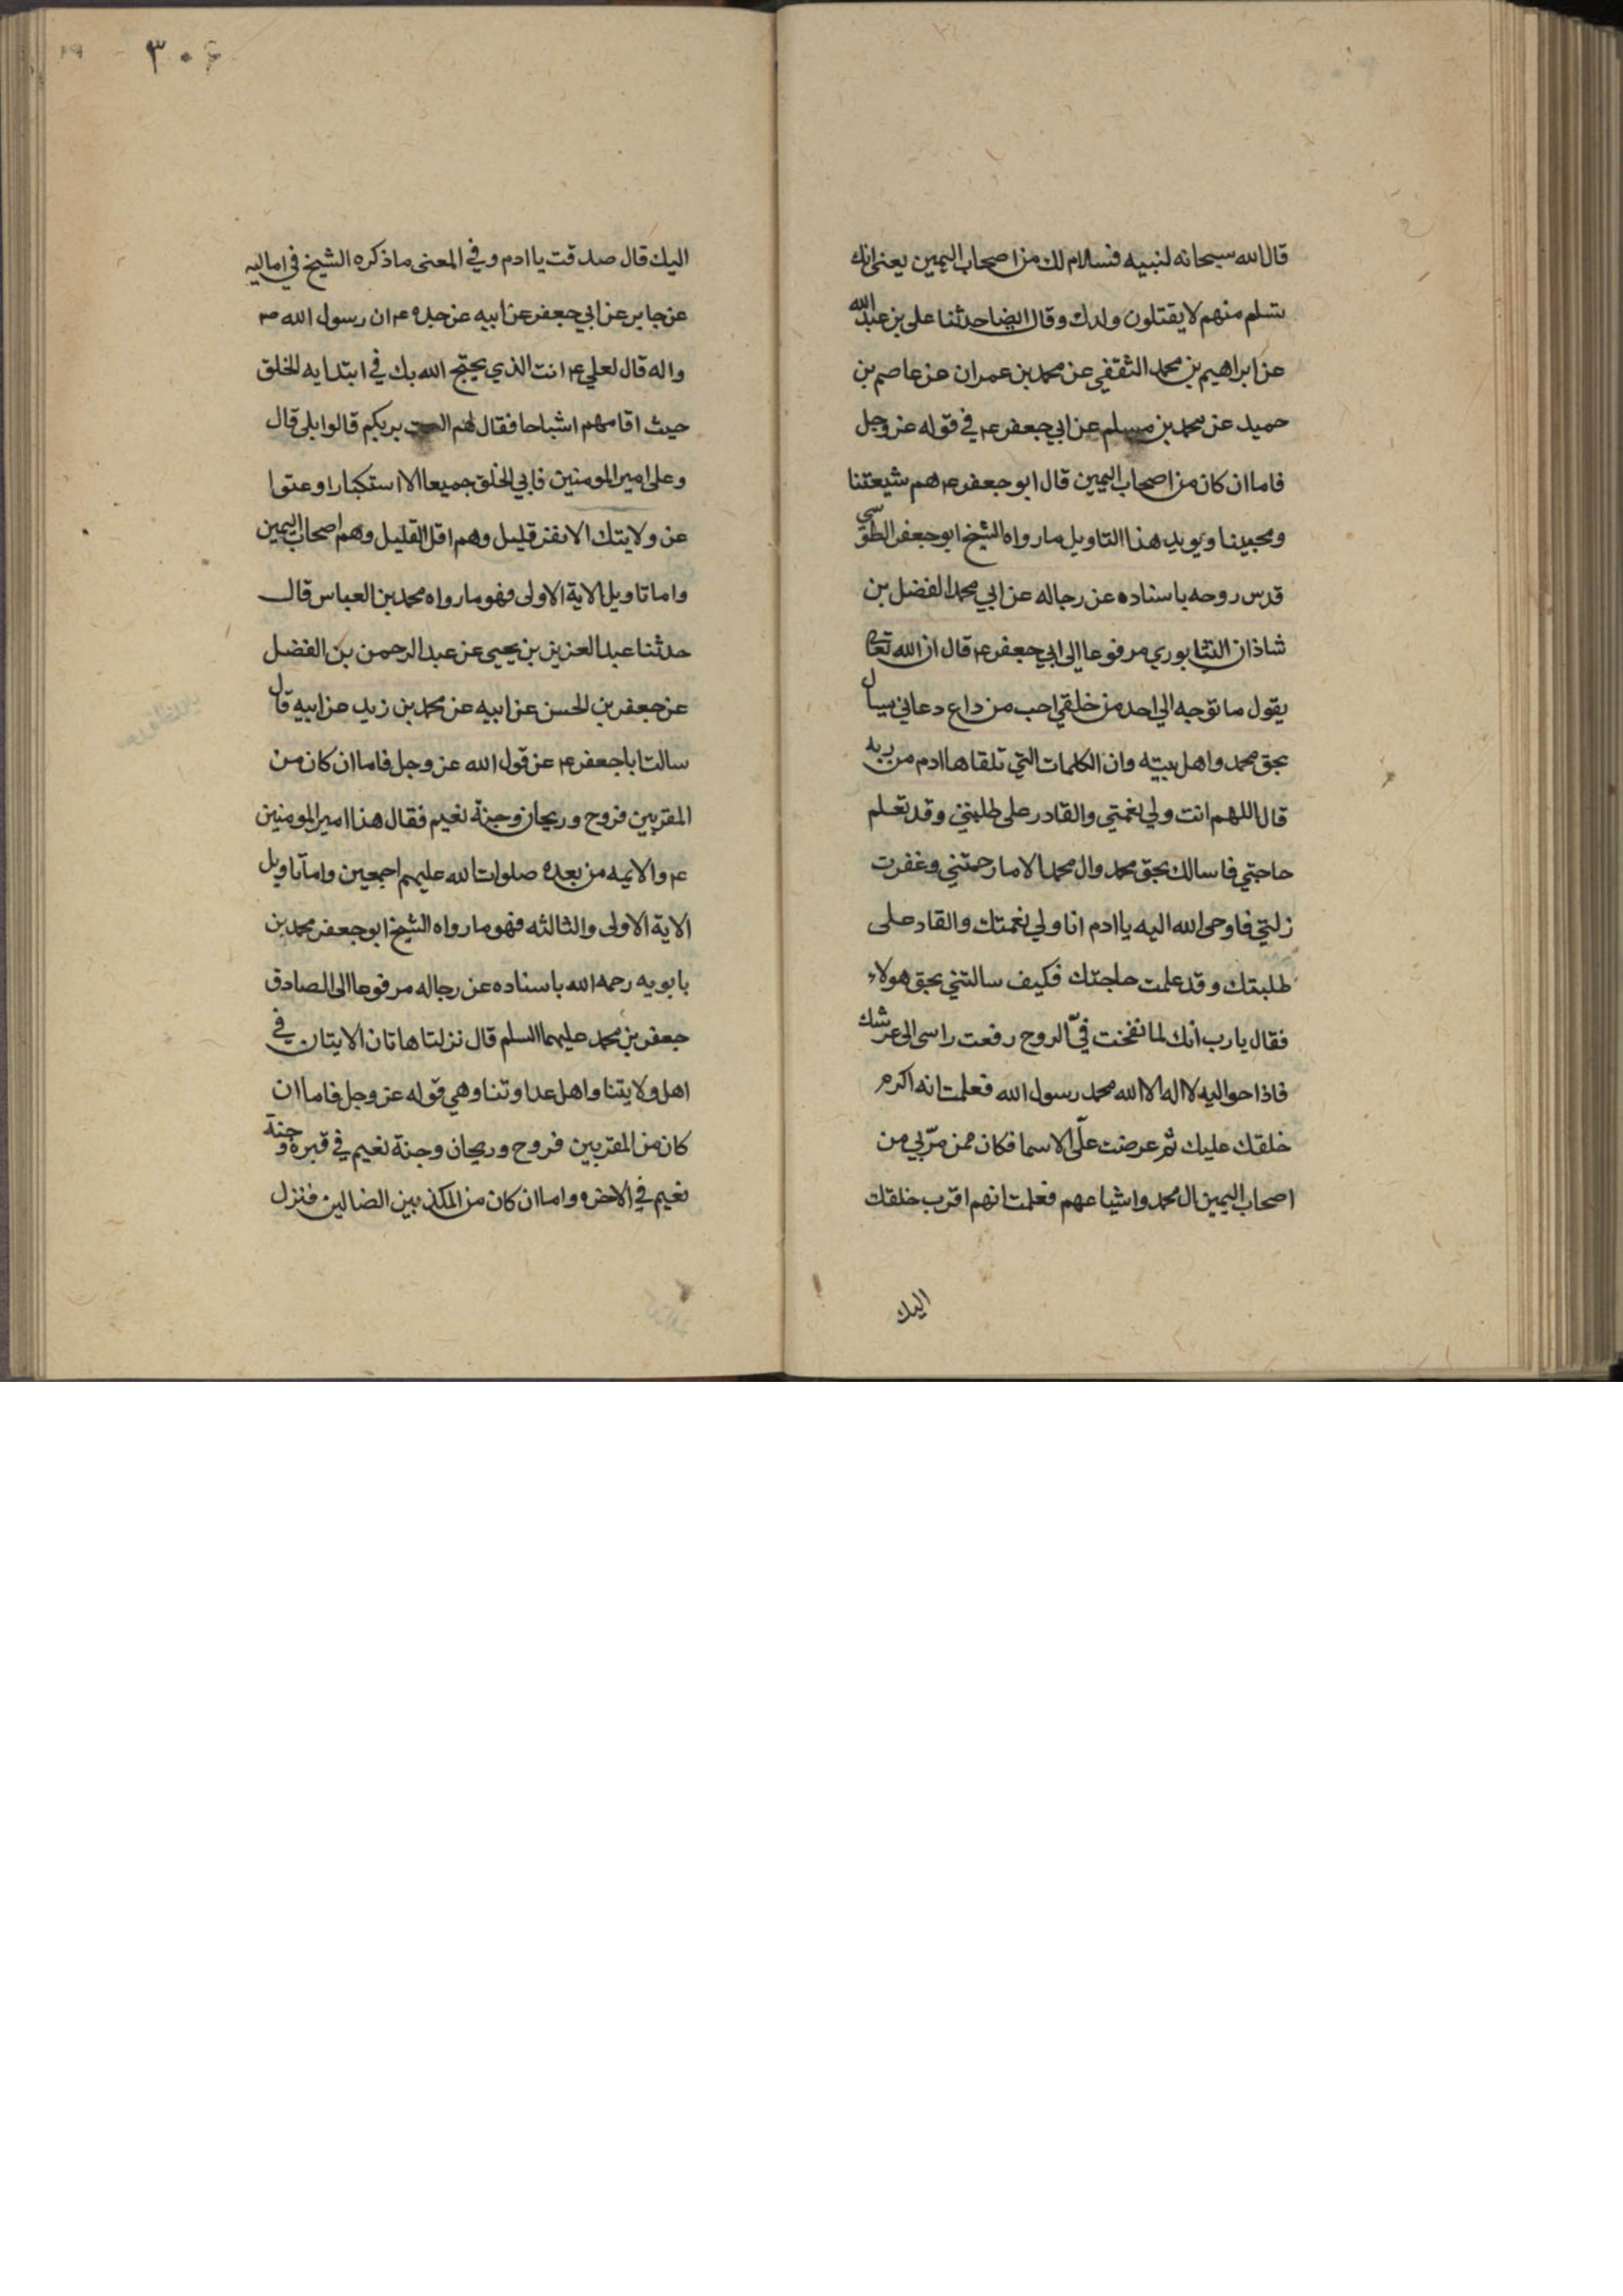 قال الله سبحانه لنبيه فسلام لك من اصحاب اليمين يعني انك
تسلم منهم لا يقتلون ولدك وقال ايضا حدثنا علي بن عبد الله
عن ابراهيم بن محمد الثقفي عن محمد بن عمران عن عاصم بن
حميد عن محمد بن مسلم عن ابي جعفر ع في قوله عز وجل
فاما ان كان من اصحاب اليمين قال ابو جعفر ع هم شيعتنا
ومحبينا ويويد هذا التاويل ما رواه الشيخ ابو جعفر الطوسي
قدس روحه باسناده عن رجاله عن ابي محمد الفضل بن
شاذان النيشابوري مرفوعا الى ابي جعفر ع قال ان الله تعالى
يقول ما توجه الي احد من خلقي احب من داع دعاني يسال
بحق محمد واهل بيته وان الكلمات التي تلقاها ادم من ربه
قال اللهم انت ولي نعمتي والقادر على طلبتي وقد تعلم
حاجتي فاسالك بحق محمد وال محمد الا ما رحمتني وغفرت
زلتي فاوحى الله اليه يا ادم انا ولي نعمتك والقادر على
طلبتك وقد علمت حاجتك فكيف سالتني بحق هولاء
فقال يا رب انك لما نفخت فيّ الروح رفعت راسي الى عرشك
فاذا حواليه لا اله الا الله محمد رسول الله فعلمت انه اكرم
خلقك عليك ثم عرضت عليّ الاسما فكان ممن مرّ بي من
اصحاب اليمين ال محمد واشياعهم فعلمت انهم اقرب خلقك
اليك
٣٠٤
اليك قال صدقت يا ادم وفي المعنى ما ذكره الشيخ في اماليه
عن جابر عن ابي جعفر عن ابيه عن جده ع ان رسول الله ص
واله قال لعلي ع انت الذي يحتج الله بك في ابتدايه الخلق
حيث اقامهم اشباحا فقال لهم الست بربكم قالوا بلى قال
وعلي امير المومنين فابى الخلق جميعا الا استكبارا وعتوا
عن ولايتك الا نفر قليل وهم اقل القليل وهم اصحاب اليمين
واما تاويل الاية الاولى فهو ما رواه محمد بن العباس قال
حدثنا عبد العزيز بن يحيى عن عبد الرحمن بن الفضل
عن جعفر بن الحسن عن ابيه عن محمد بن زيد عن ابيه قال
سالت ابا جعفر ع عن قول الله عز وجل فاما ان كان من
المقربين فروح وريحان وجنة نعيم فقال هذا امير المومنين
ع والايمه من بعده صلوات الله عليهم اجمعين واما تاويل
الاية الاولى والثالثه فهو ما رواه الشيخ ابو جعفر محمد بن
بابويه رحمه الله باسناده عن رجاله مرفوعا الى الصادق
جعفر بن محمد عليهما السلم قال نزلتا هاتان الايتان في
اهل ولايتنا واهل عداوتنا وهي قوله عز وجل فاما ان
كان من المقربين فروح وريحان وجنة نعيم في قبره وجنة
نعيم في الاخره واما ان كان من المكذبين الضالين فنزل